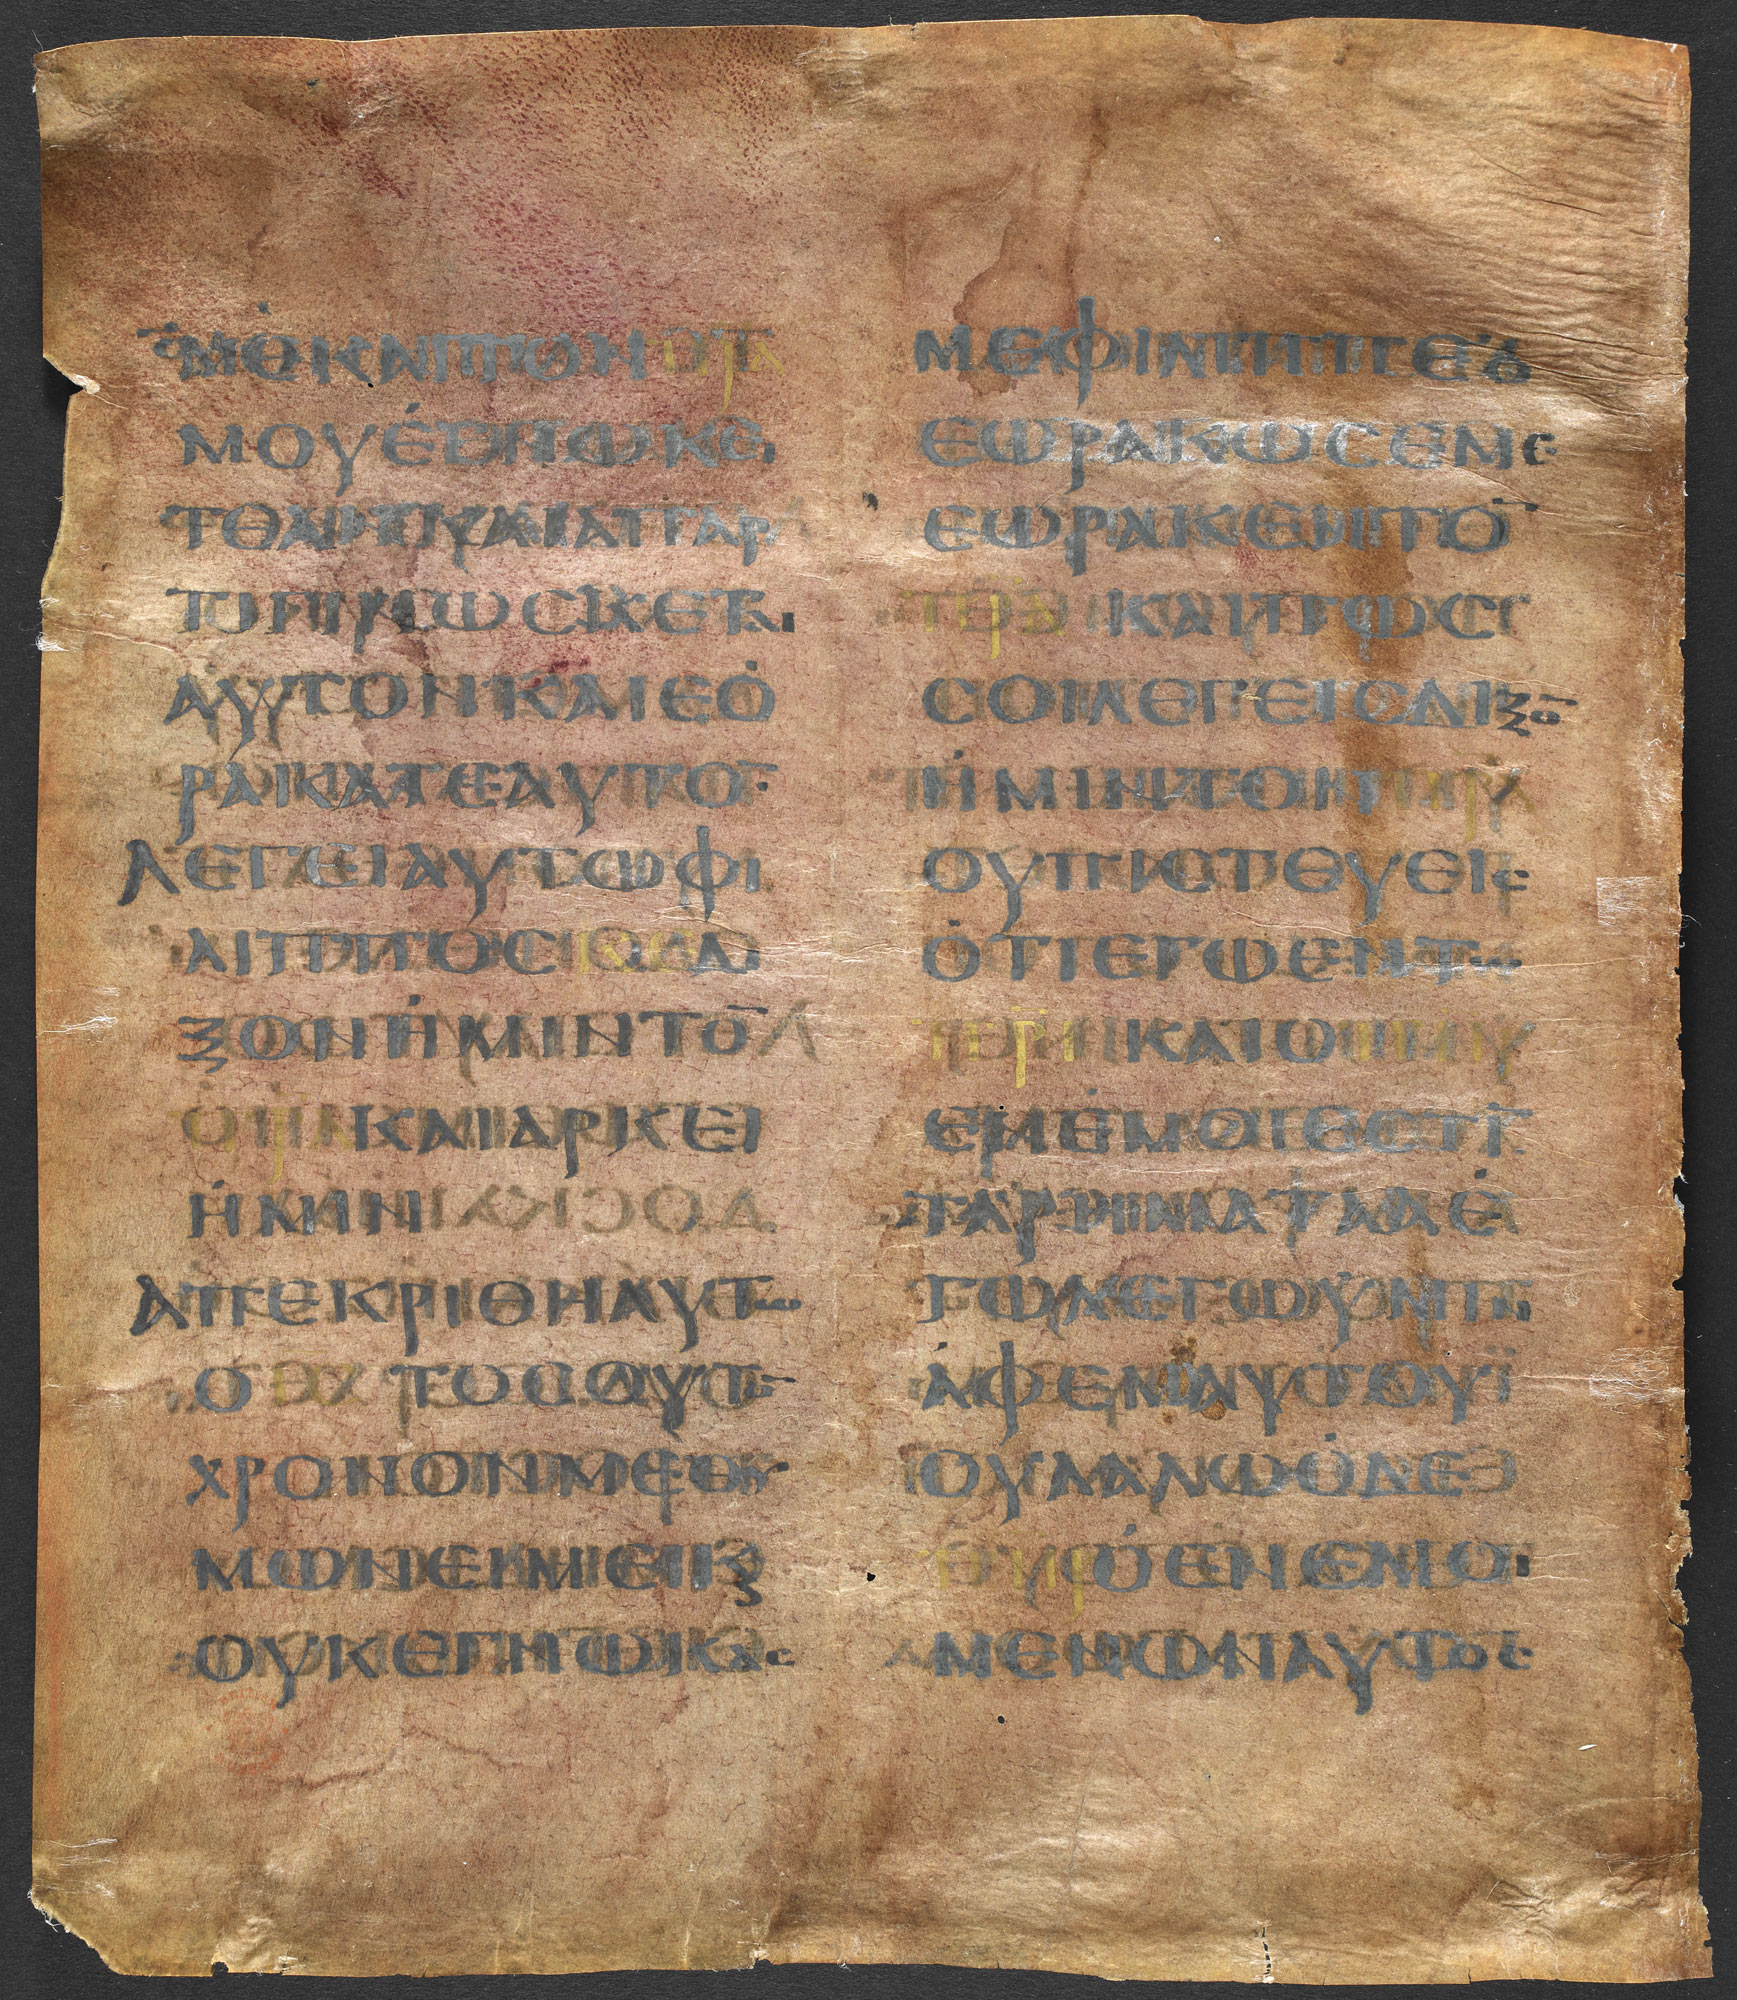 ΜΕΚΑΙΤΟΝΠΡΑ
ΜΟΥΕΓΝΩΚΕΙ
ΤΕΑΝΚΑΙΑΠΑΡ
ΤΙΓΙΝΩϹΚΕΤΑΙ
ΑΥΤΟΝΚΑΙΕΟ
ΡΑΚΑΤΕΑΥΤΟ̄
ΛΕΓΕΙΑΥΤΩΦΙ
ΛΙΠΠΟϹΚΕΔΙ
ΞΟΝΗΜΙΝΤΟ̄
ΠΡΑΚΑΙΑΡΚΕΙ
ΗΜΙΝ
ΑΠΕΚΡΙΘΗΑΥΤΩ
Ο ΙϹ ΤΟϹΟΥΤΟ̄
ΧΡΟΝΟΝΜΕΘΥ
ΜΩΝΕΙΜΕΙϏ
ΟΥΚΕΓΝΩΚΑϹ
ΜΕΦΙΛΙΠΠΕΟ
ΕΩΡΑΚΩϹΕΜΕ
ΕΩΡΑΚΕΝΤΟ̄
ΠΡΑΚΑΙΠΩϹ
ϹΟΙΛΕΓΕΙϹΔΙΞΟ̄
ΗΜΙΝΤΟΝΠΡΑ
ΟΥΠΙϹΤΕΥΕΙϹ
ΟΤΙΕΓΩΕΝΤΩ
ΠΡΙΚΑΙΟΠΗΡ
ΕΝΕΜΟΙΕϹΤῙ
ΤΑΡΗΜΑΤΑΑΕ
ΓΩΛΕΓΩΥΜΙΝ
ΑΦΕΜΑΥΤΟΥ
ΟΥΛΑΛΩΟΔΕ
ΠΗΡΟΕΝΕΜΟΙ
ΜΕΝΩΝΑΥΤΟϹ